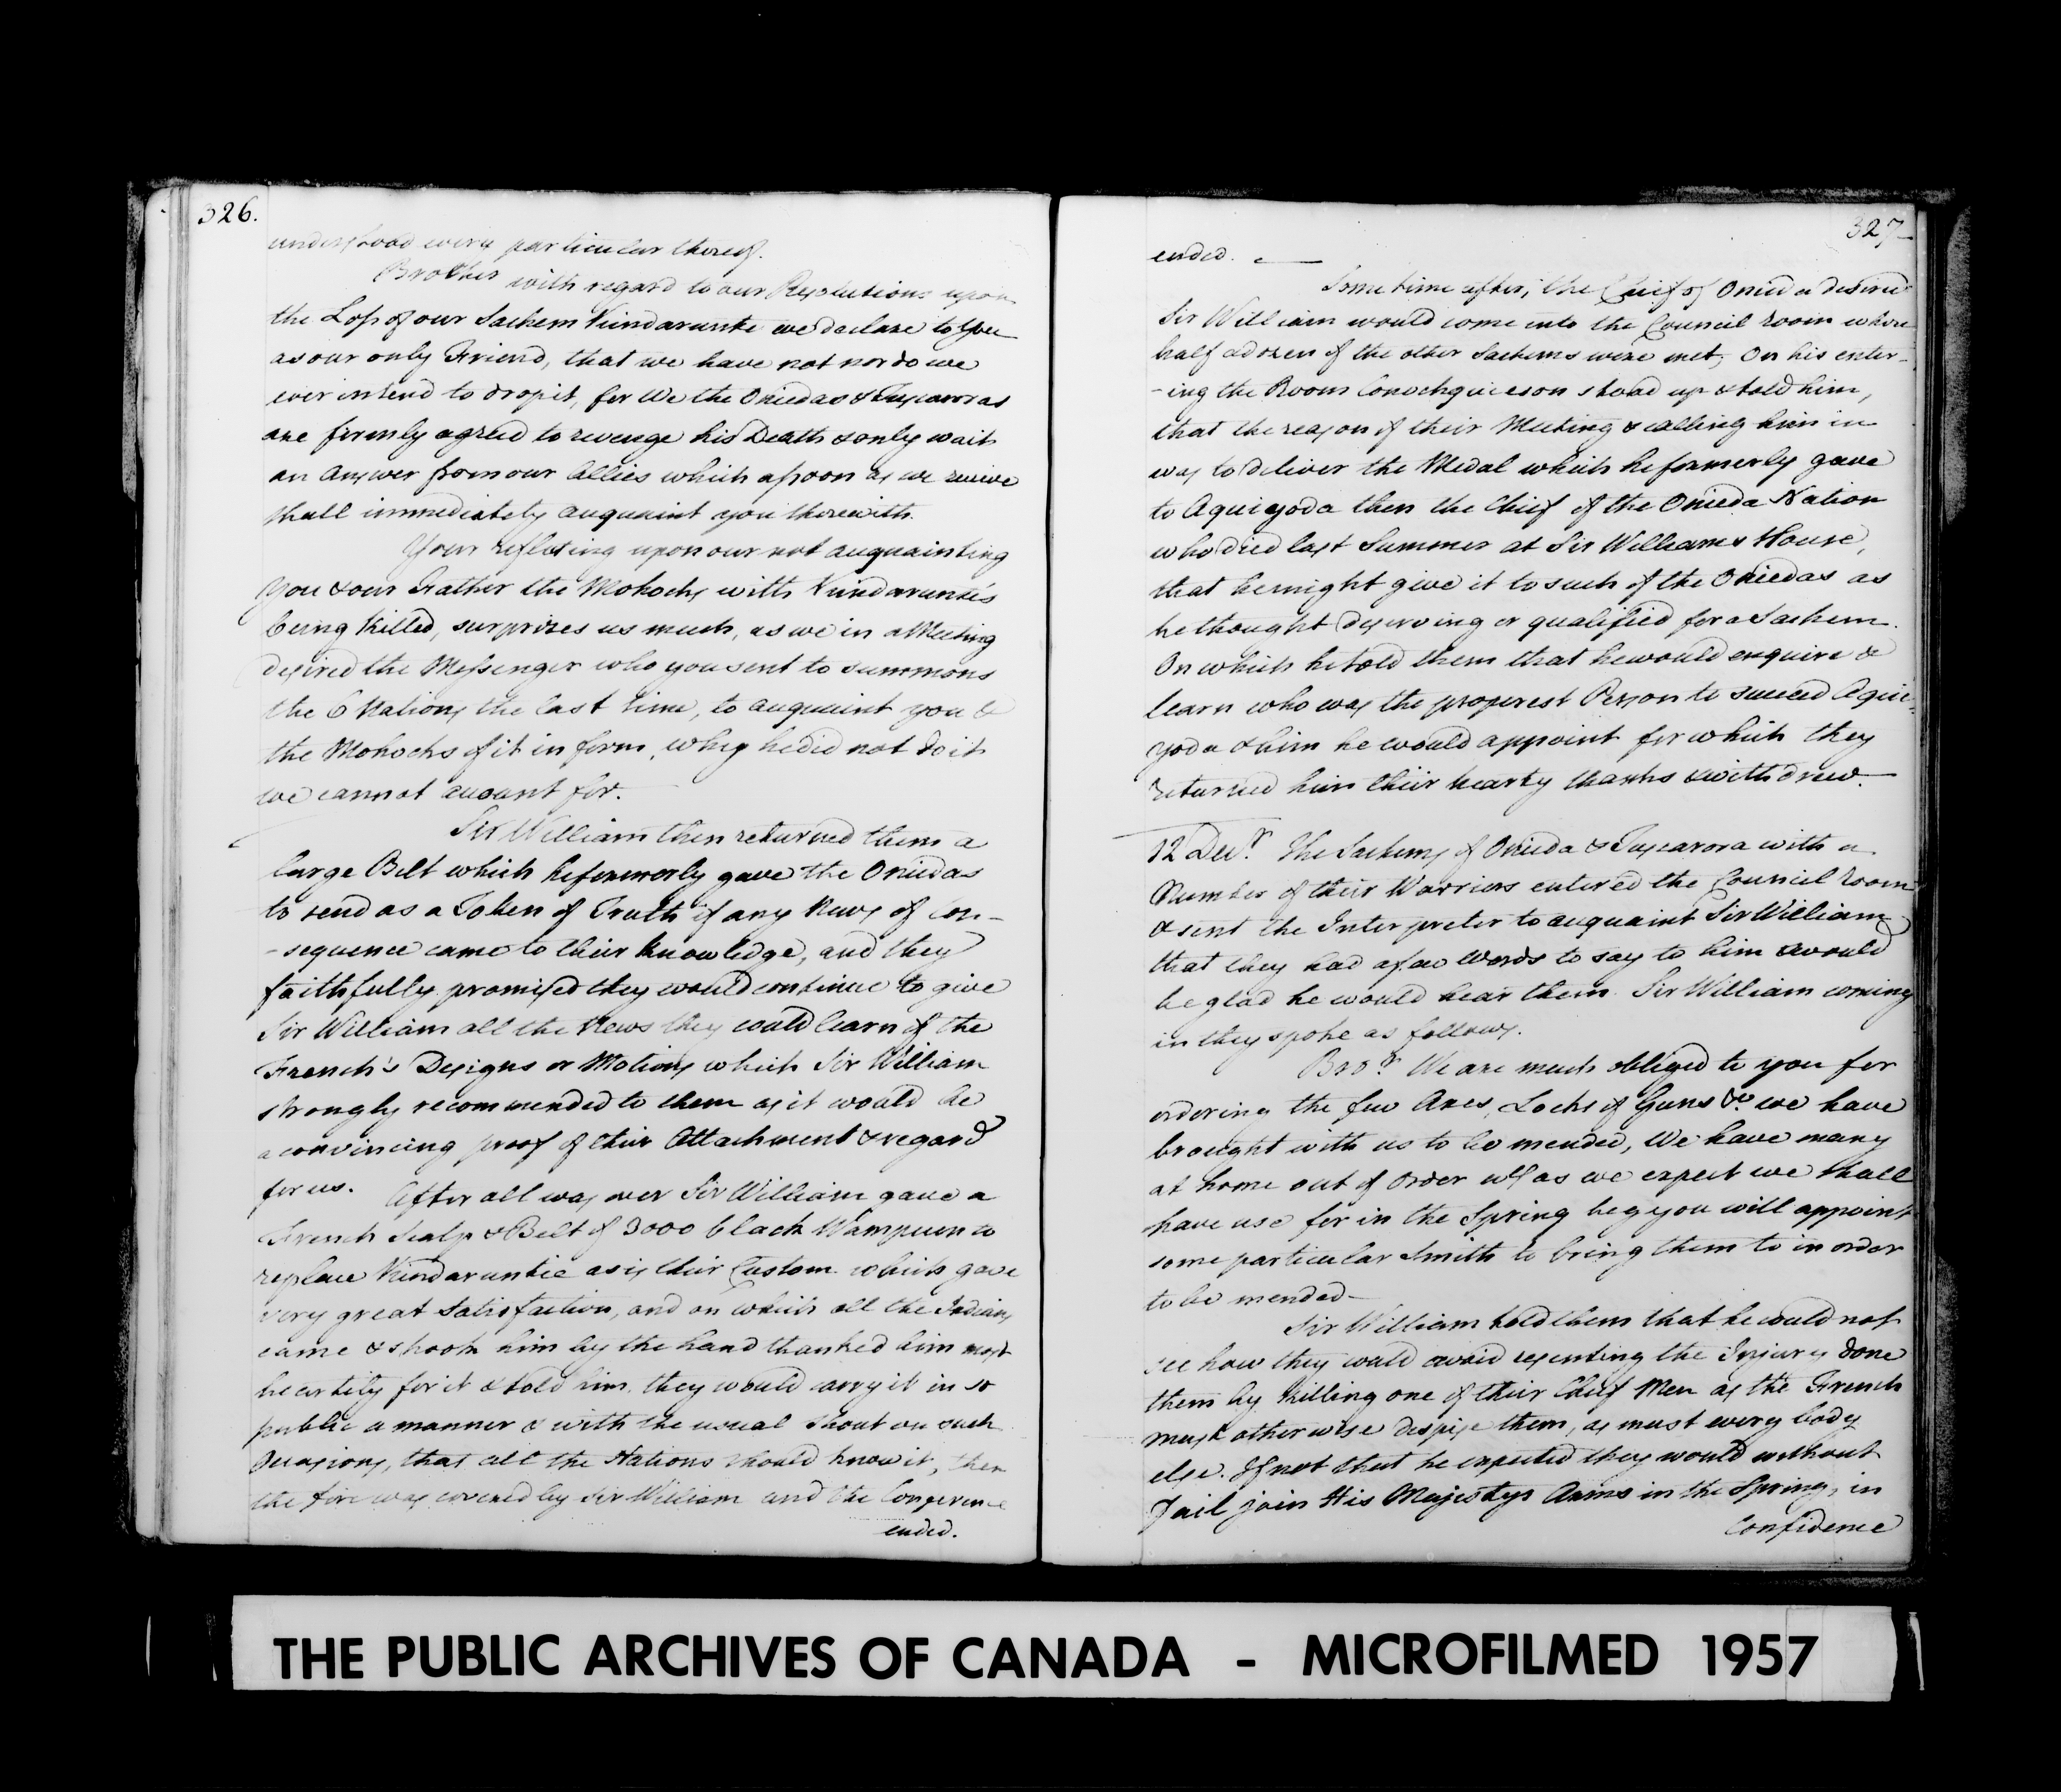 326.
understood every particular thereof.
Brother with regard to our Resolutions upon
the Loss of our Sachem Kindarunte we declare to you
as our only Friend, that we have not nor do we
ever intend to drop it, for We the Oniedas & Tuscaroras
are firmly agreed to revenge his Death & only wait
an Answer from our Allies which assoon as we recieve
shall immediately acquaint you therewith.
Your reflecting upon our not acquainting
you & our Father the Mohocks with Kindarunte's
being Killed, surprizes us much, as we in a Meeting
desired the Messenger who you sent to summons
the 6 Nations the last time, to acquaint you &
the Mohocks of it in form, why he did not do it
we cannot account for.
Sir William then returned them a
large Belt which he formerly gave the Oniedas
to send as a Token of Truth if any News of Con-
-sequence came to their knowledge, and they
faithfully promised they would continue to give
Sir William all the News they could learn of the
French's Designs or Motions which Sir William
strongly recommended to them as it would be
a convincing proof of their Attachment & regard
for us. After all was over Sir William gave a
French Scalp & Belt of 3000 black Wampum to
replace Kindaruntie as is their Custom which gave
very great Satisfaction, and on which all the Indians
came & shook him by the hand thanked him most
heartily for it & told him they would carry it in so
public a manner & with the usual Shout on such
Occasions, that all the Nations should know it, then
the fire was covered by Sir William and the Conference
ended.
327
ended.
Some time after, the Chief of Onieda desired
Sir William would come into the Council room where
half a dozen of the other Sachems were met, On his enter-
-ing the Room Conochquieson stood up & told him,
that the reason of their Meeting & calling him in
was to deliver the Medal which he formerly gave
to Aquiyoda then the Chief of the Onieda Nation
who died last Summer at Sir Williams House,
that he might give it to such of the Oniedas as
he thought deserving or qualified for a Sachem.
On which he told them that he would enquire &
learn who was the properest Person to succeed Aquie-
yoda & him he would appoint for which they
returned him their hearty thanks & withdrew.
12 Decr. The Sachems of Onieda & Tuscarora with a
Number of their Warriors entered the Council Room
& sent the Interpreter to acquaint Sir William
that they had a few Words to say to him & would
be glad he would hear them. Sir William coming
in they spoke as follows.
Bror. We are much obliged to you for
ordering the few Axes, Locks of Guns &c. we have
brought with us to be mended, We have many
at home out of Order wh. as we expect we shall
have use for in the Spring beg you will appoint
some particular Smith to bring them to in order
to be mended
Sir William told them that he could not
see how they could avoid resenting the Injury done
them by Killing one of their Chief Men as the French
must otherwise despise them, as must every body
else. If not that he expected they would without
Fail join His Majestys Arms in the Spring, in
Confidence
THE PUBLIC ARCHIVES OF CANADA - MICROFILMED 1957